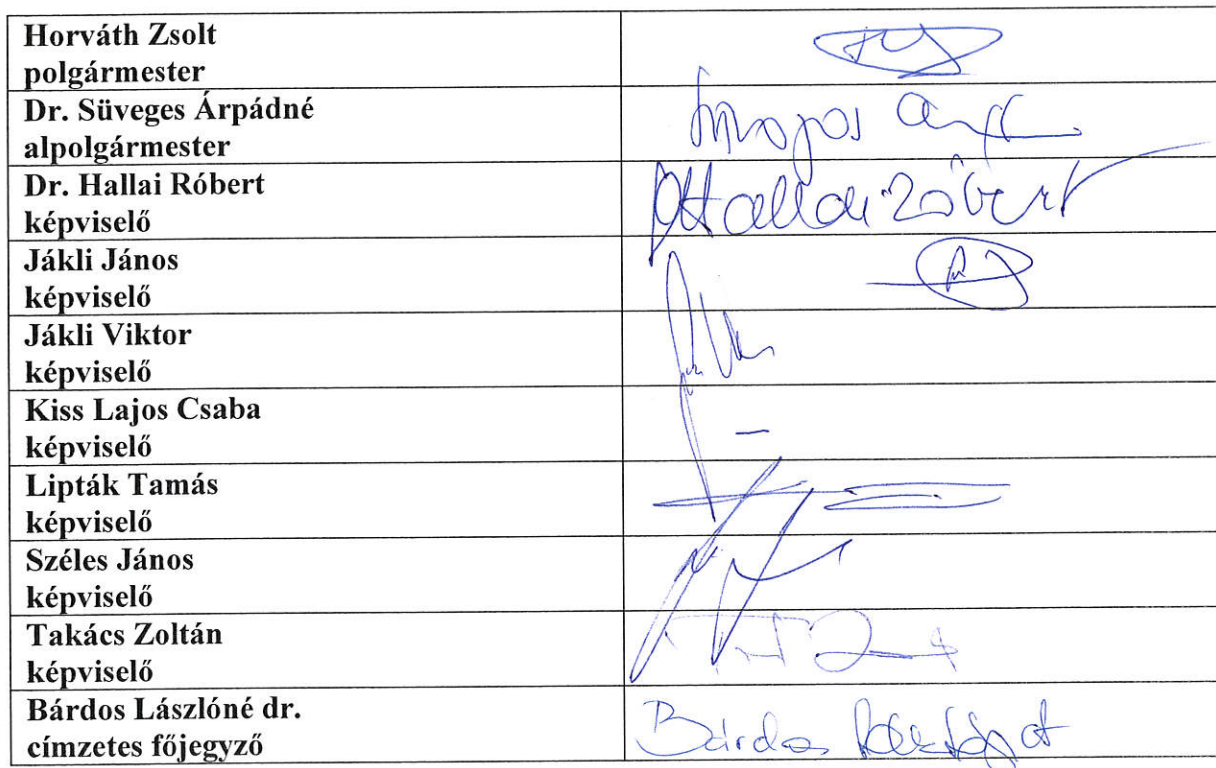 Horváth Zsolt
polgármester
Dr. Süveges Árpádné
alpolgármester
Dr. Hallai Róbert
képviselő
Hallai Róbert
Jákli János
képviselő
Jákli Viktor
képviselő
Kiss Lajos Csaba
képviselő
–
Lipták Tamás
képviselő
Széles János
képviselő
Takács Zoltán
képviselő
Bárdos Lászlóné dr.
címzetes főjegyző
Bárdos